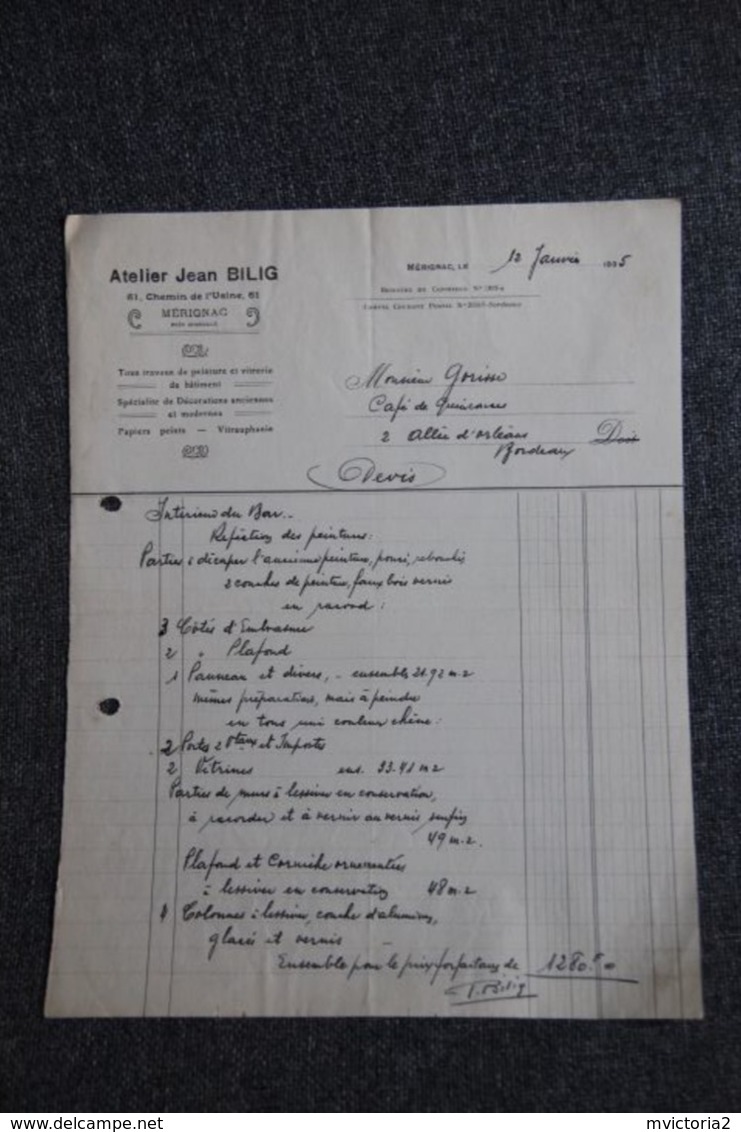 Atelier Jean BILIG
61, Chemin de l'Usine, 61
MÉRIGNAC
PRÈS BORDEAUX
Tous travaux de peinture et vitrerie
de bâtiment
Spécialité de Décorations anciennes
et modernes
Papiers peints — Vitrauphanie
MÉRIGNAC, LE 12 Janvier 1935
REGISTRE DE COMMERCE N°
COMPTE COURANT POSTAL N° Bordeaux
Monsieur Gorisse
Café de
2 allée d'orléans Doit
Bordeaux
Devis
Intérieur du Bar..
Refection des peintures:
Parties à décaper l'ancienne peinture, rebouchés
2 couches de peinture, faux bois vernis
en racord:
3 Côtés d'Embrasure
2 " Plafond
1 Panneau et divers, - ensemble 21.92 m.2
mêmes préparations, mais à peindre
en tons uni couleur chêne:
2 Portes 2 Vtaux et Impostes
2 Vitrines ens. 33.41 m2
Parties de murs à lessiver en conservation,
à racorder et à vernir au vernis
49 m.2.
Plafond et Corniche ornementées
à lessiver en conservation 48 m.2
4 Colonnes à lessiver, couche d'aluminium,
glacis et vernis
Ensemble pour le prix forfaitaire de 1280.f00
J. Bilig
delcampe.net
mvictoria2